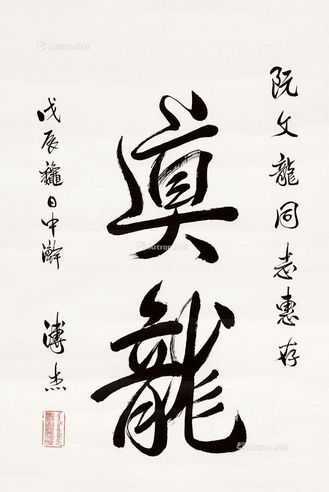 阮文龍同志惠存
眞龍
戊辰龝日中澣
溥杰
Artron.Net